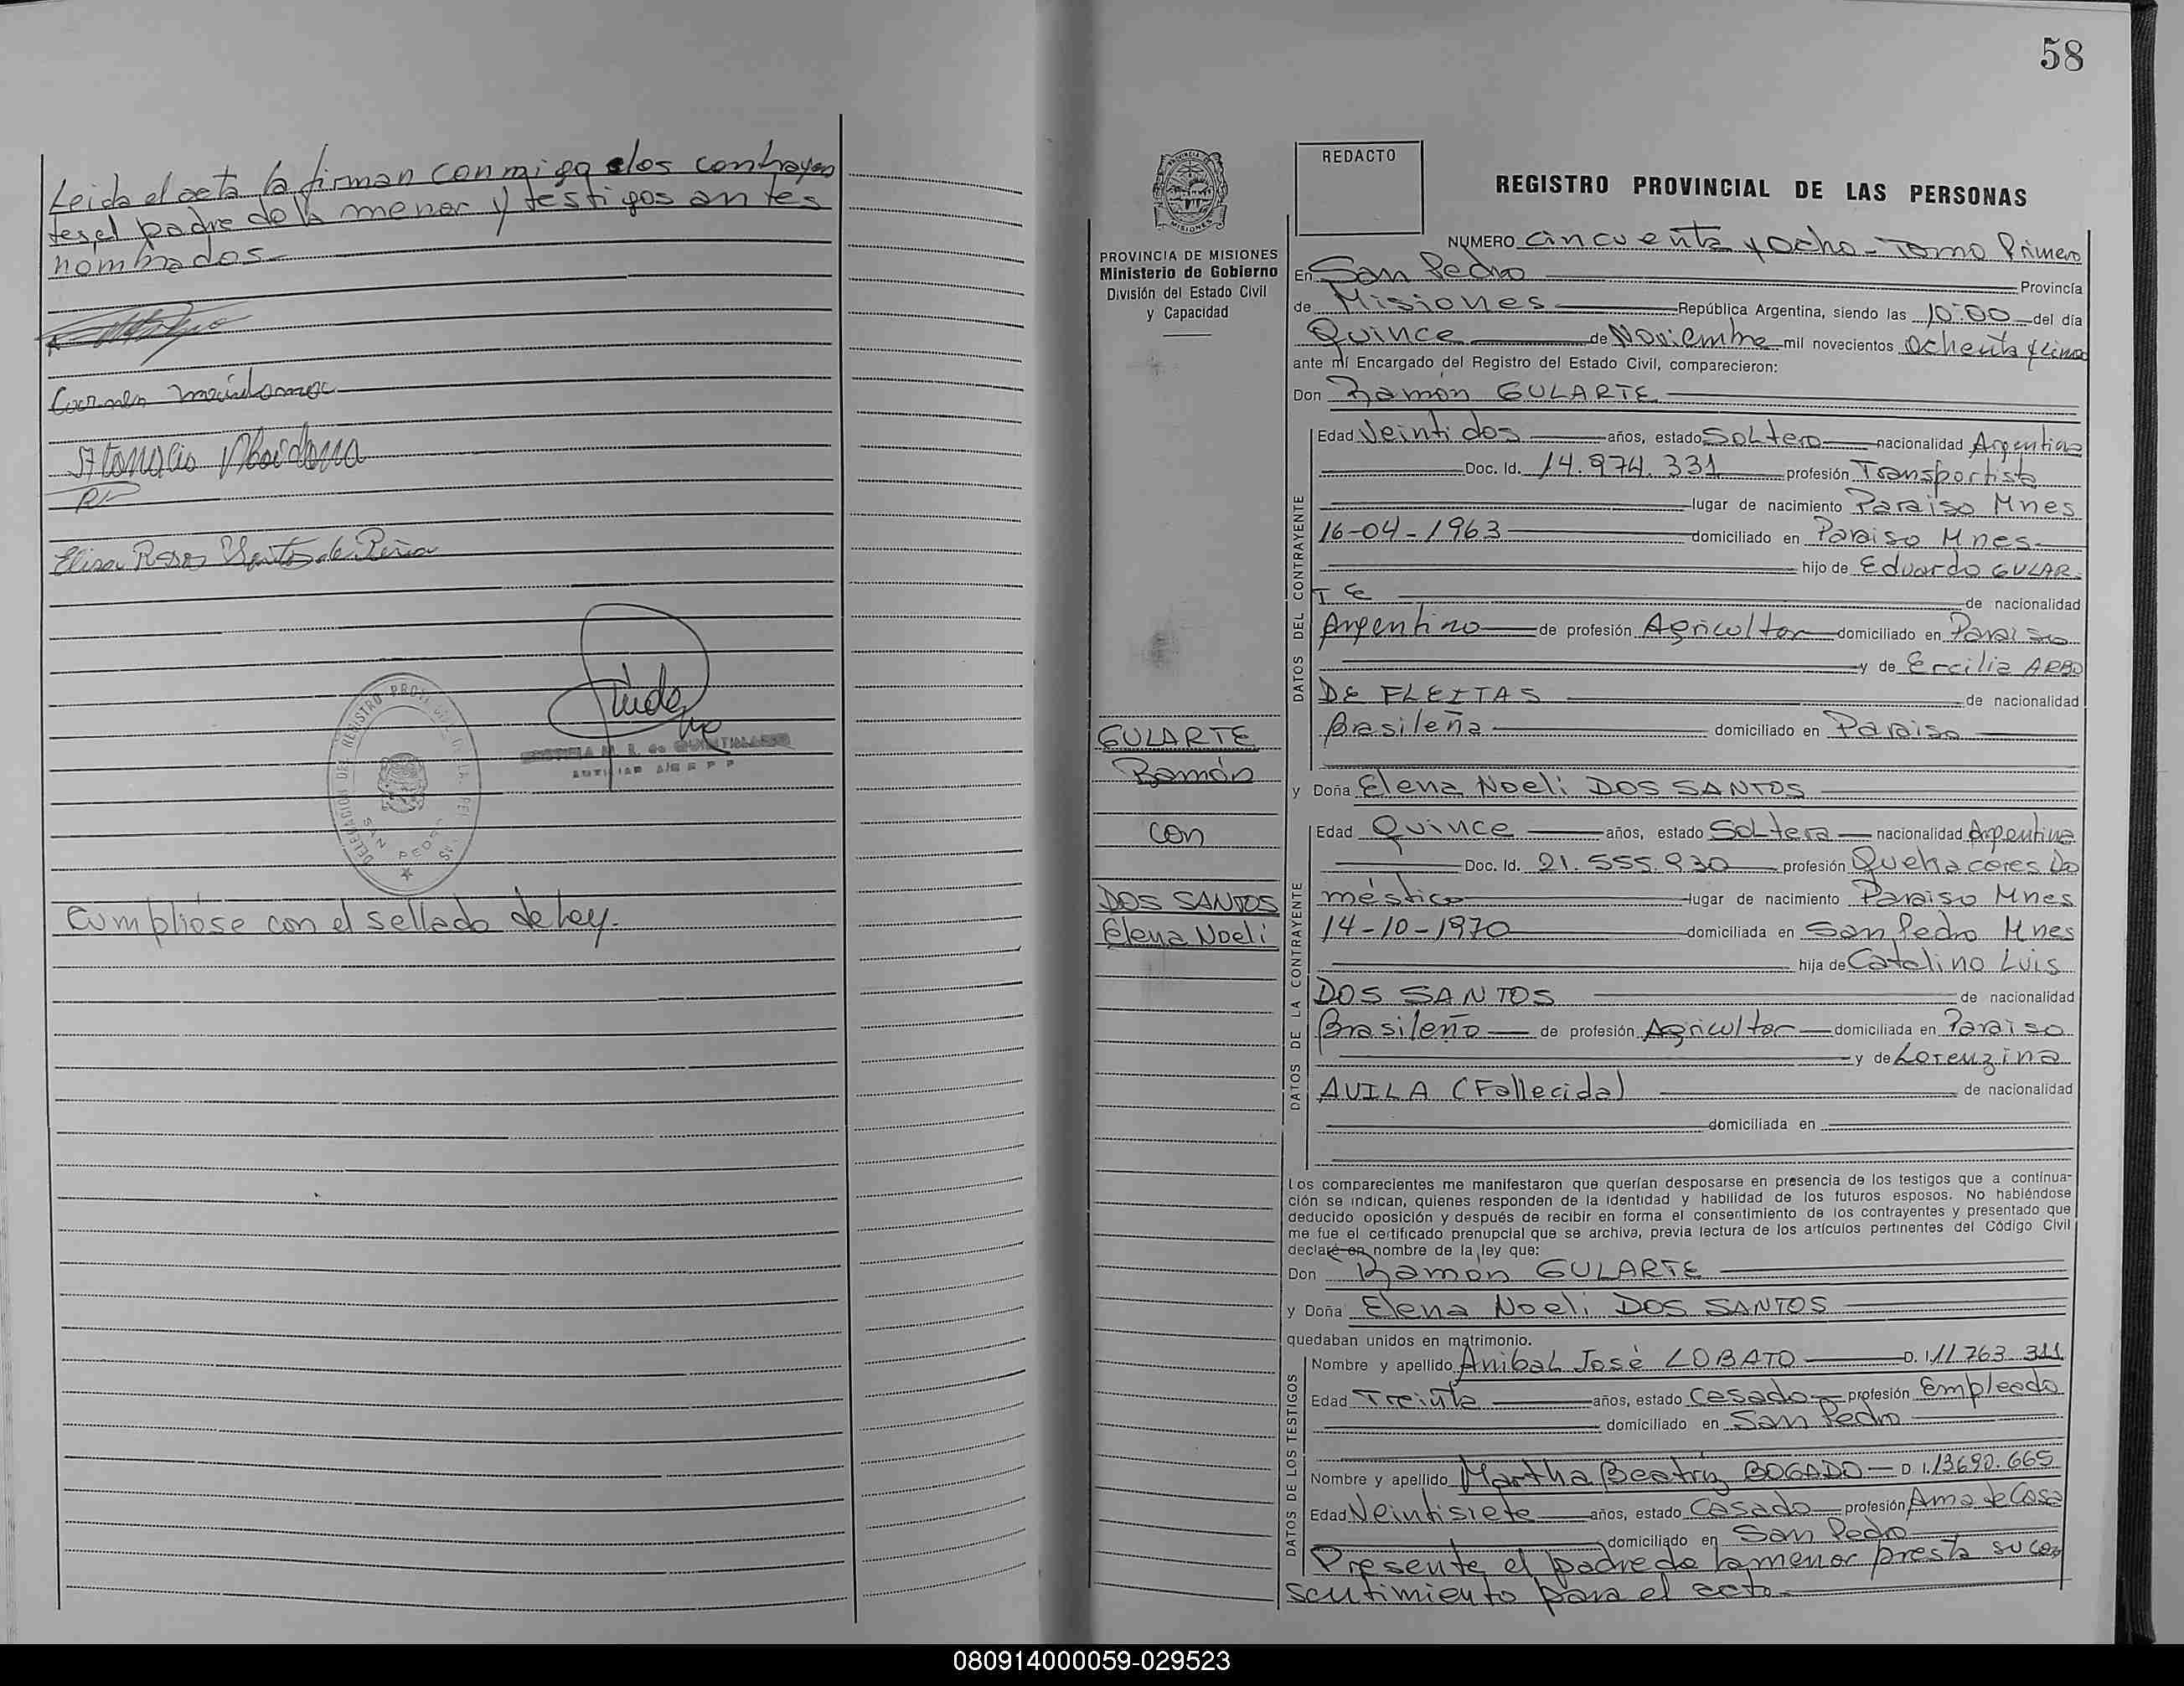 Leida el acta la firman conmigo los contrayen
tes, el padre de la menor y testigos antes
nombrados.-
Carmen
Elisa Rosa de Peña
DELEGACION DE REGISTRO PROVINCIAL DE LAS PERSONAS
SAN PEDRO
de QUINTILLANO
AUXILIAR
Cumpliose con el sellado de Ley.-
58
REDACTO
REGISTRO PROVINCIAL DE LAS PERSONAS
PROVINCIA DE MISIONES
Ministerio de Gobierno
División del Estado Civil
y Capacidad
GULARTE
Ramón
con
DOS SANTOS
Elena Noeli
NUMERO cincuenta y ocho - Tomo Primero
En San Pedro Provincia
de Misiones República Argentina, siendo las 10:00 del día
Quince de Noviembre mil novecientos ochenta y cinco
ante mí Encargado del Registro del Estado Civil, comparecieron:
Don Ramón GULARTE
DATOS DEL CONTRAYENTE
Edad Veintidos años, estado Soltero nacionalidad Argentino
Doc. Id. 14.974.331 profesión Transportista
lugar de nacimiento Paraiso Mnes
16-04-1963 domiciliado en Paraiso Mnes
hijo de Eduardo GULAR-
TE de nacionalidad
Argentino de profesión Agricultor domiciliado en Paraiso
y de Ercilia ARBO
DE FLEITAS de nacionalidad
Brasileña domiciliado en Paraiso
y Doña Elena Noeli DOS SANTOS
DATOS DE LA CONTRAYENTE
Edad Quince años, estado Soltera nacionalidad Argentina
Doc. Id. 21.555.930 profesión Quehaceres Do
méstico lugar de nacimiento Paraiso Mnes
14-10-1970 domiciliada en San Pedro Mnes
hija de Catalino Luis
DOS SANTOS de nacionalidad
Brasileño de profesión Agricultor domiciliada en Paraiso
y de Lorenzina
AVILA (Fallecida) de nacionalidad
domiciliada en
Los comparecientes me manifestaron que querían desposarse en presencia de los testigos que a continua-
ción se indican, quienes responden de la identidad y habilidad de los futuros esposos. No habiéndose
deducido oposición y después de recibir en forma el consentimiento de los contrayentes y presentado que
me fue el certificado prenupcial que se archiva, previa lectura de los artículos pertinentes del Código Civil
declaré en nombre de la ley que:
Don Ramón GULARTE
y Doña Elena Noeli DOS SANTOS
quedaban unidos en matrimonio.
DATOS DE LOS TESTIGOS
Nombre y apellido Anibal José LOBATO D.I. 11.763.311
Edad Treinta años, estado Casado profesión Empleado
domiciliado en San Pedro
Nombre y apellido Martha Beatriz BOGADO D.I. 13.690.665
Edad Veintisiete años, estado Casado profesión Ama de Casa
domiciliado en San Pedro
Presente el padre de la menor presta su con
sentimiento para el acto.-
080914000059-029523